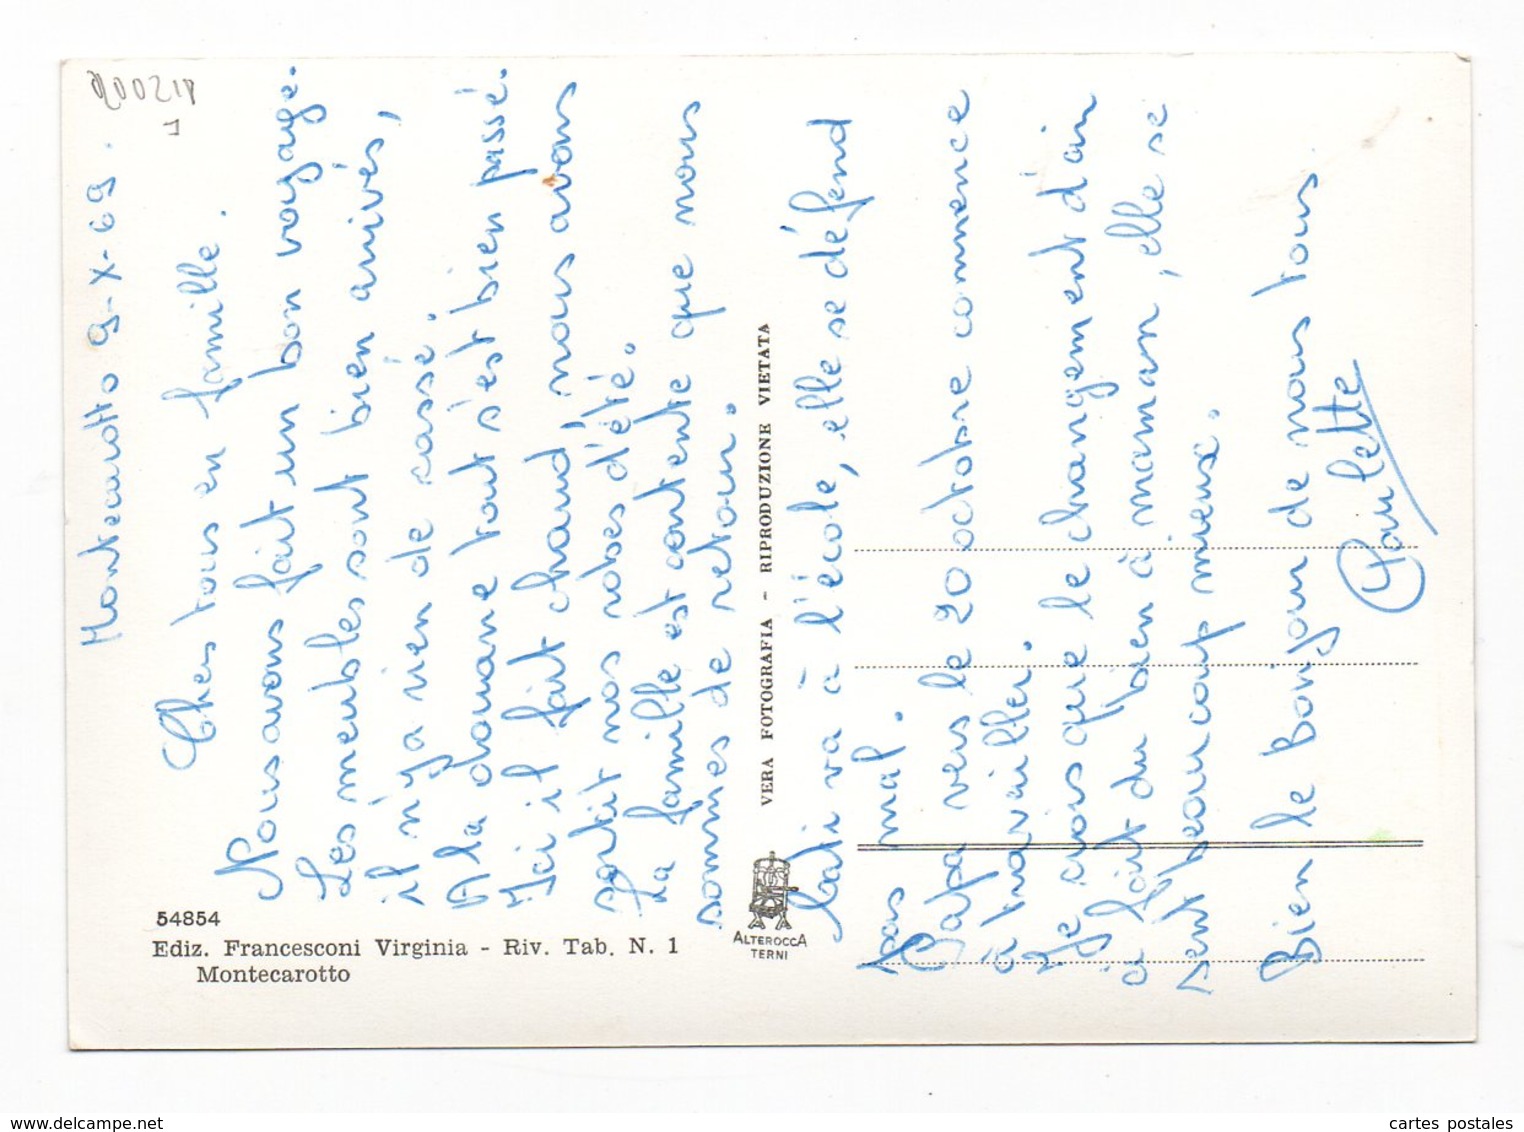 Montecarotto 9-X-69.
Chers tous en famille.
Nous avons fait un bon voyage.
Les meubles sont bien arrivés,
il n'y a rien de cassé.
A la douane tout s'est bien passé.
Ici il fait chaud nous avons
sortit nos robes d'été.
La famille est contente que nous
sommes de retour.
Cati va à l'école, elle se défend
pas mal.
Papa vers le 20 octobre commence
à travailler.
Je crois que le changement d'air
a fait du bien à maman, elle se
sent beaucoup mieux.
Bien le bonjour de nous tous.
Paulette
54854
Ediz. Francesconi Virginia - Riv. Tab. N. 1
Montecarotto
VERA FOTOGRAFIA - RIPRODUZIONE VIETATA
ALTEROCCA
TERNI
https://www.delcampe.net
cartes postales